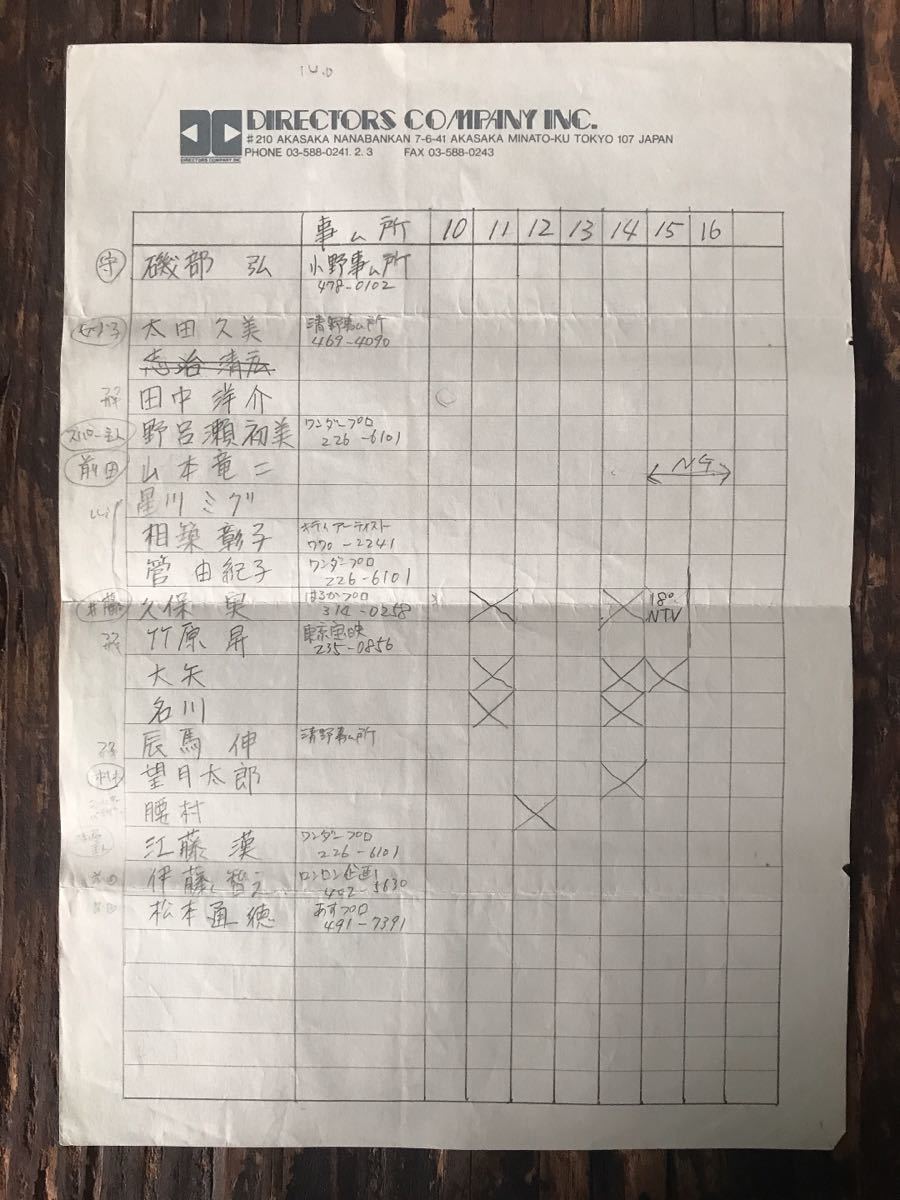 DIRECTORS COMPANY INC.
#210 AKASAKA NANABANKAN 7-6-41 AKASAKA MINATO-KU TOKYO 107 JAPAN
PHONE 03-588-0241. 2. 3 FAX 03-588-0243
DIRECTORS COMPANY INC
事ム所 10 11 12 13 14 15 16
守 磯部 弘 小野事ム所
478-0102
太田久美 清野事ム所
469-4090
志治 清広
田中洋介
野呂瀬初美 ワンダープロ
226-6101
前田 山本竜二 NG
星川ミグ
相築彰子 キティアーティスト
770-2241
管由紀子 ワンダープロ
226-6101
井藤 久保 実 はるかプロ 18°
314-0258 NTV
竹原昇 東京宝映
235-0856
大矢
名川
辰馬伸 清野事ム所
望月太郎
腰村
江藤漢 ワンダープロ
226-6101
伊藤 ロンロン企画
402-5630
松本通徳 あすプロ
491-7391